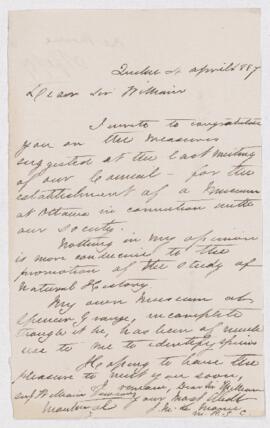 Quebec 4 April 1887
Dear Sir William
I write to congratulate
you on the measures
suggested at the last meeting
of our Council - for the
establishment of a Museum
at Ottawa in connection with
our society.
Nothing in my opinion
is more conducive to the
promotion of the study of
Natural History.
My own Museum at
Spencer Grange, incomplete
though it be, has been of much
use to me to identify species
Hoping to have the
pleasure to meet you soon,
I remain, Dear Sir William
Sir William Dawson your most obdt
Montreal J. M. Le Moine
M. R. S. C.